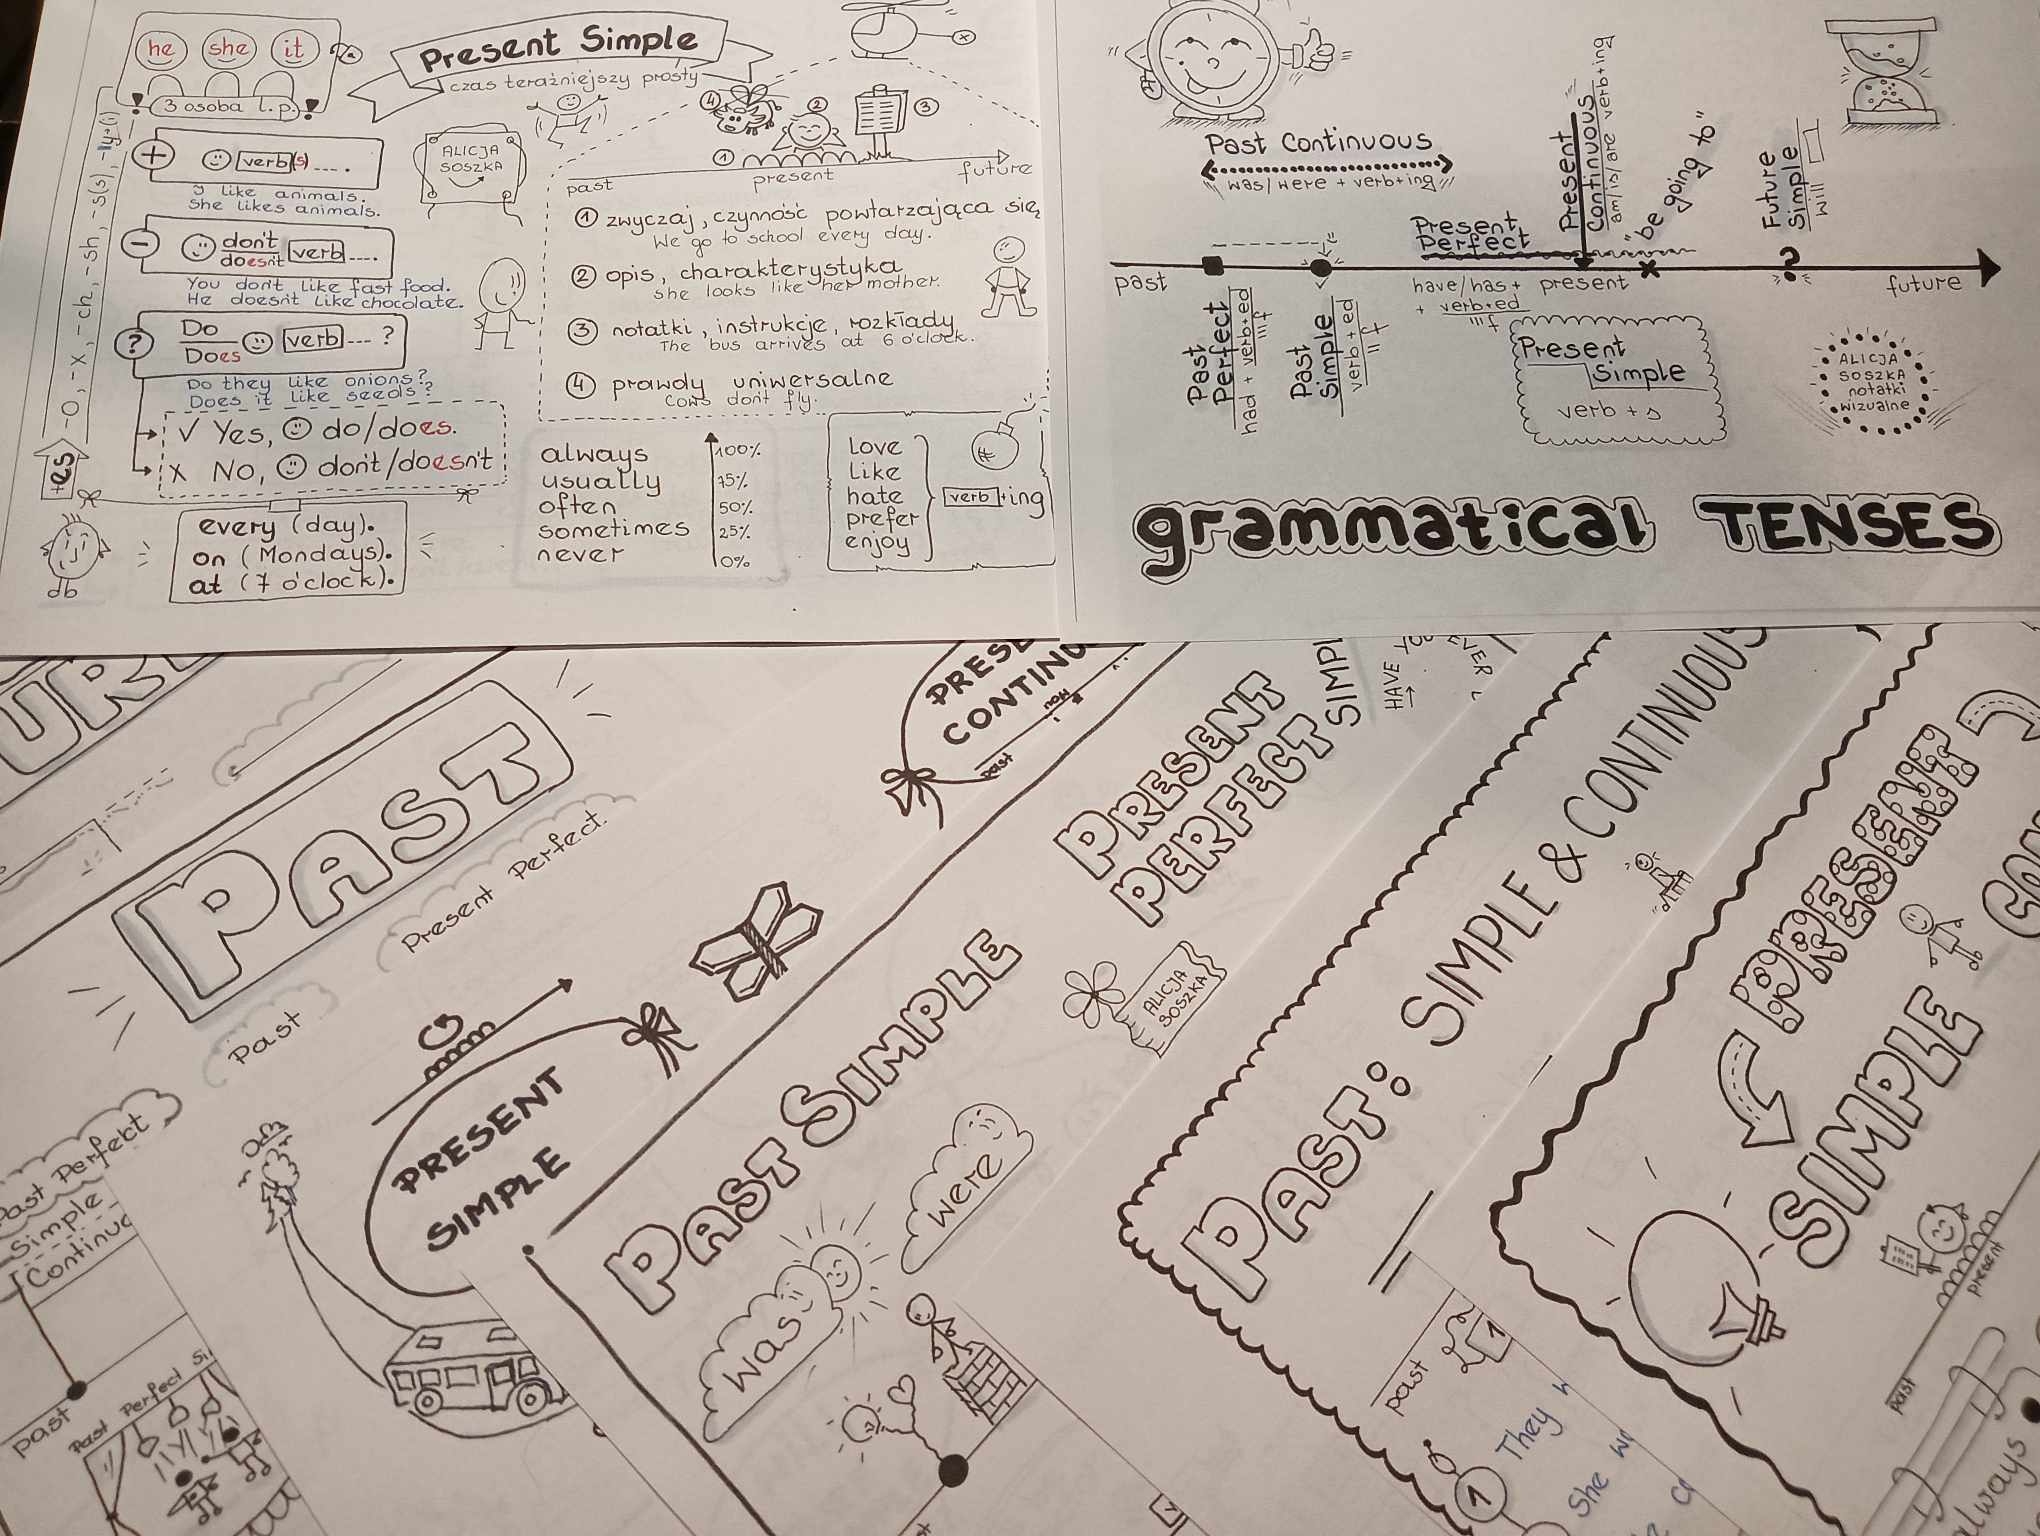 he she it
3 osoba l.p.
+es -o, -x, -ch, -sh, -s(s), -y→(i)
+ verb(s)....
I like animals.
She likes animals.
- don't
doesn't verb....
You don't like fast food.
He doesn't like chocolate.
? Do
Does verb... ?
Do they like onions?
Does it like seeds?
√ Yes, do/does.
x No, don't/doesn't
every (day).
on (Mondays).
at (7 o'clock).
Present Simple
czas teraźniejszy prosty
ALICJA
SOSZKA
4 2 3
1
past present future
1 zwyczaj, czynność powtarzająca się
We go to school every day.
2 opis, charakterystyka
She looks like her mother.
3 notatki, instrukcje, rozkłady
The bus arrives at 6 o'clock.
4 prawdy uniwersalne
Cows don't fly.
always 100%
usually 75%
often 50%
sometimes 25%
never 0%
love
like
hate
prefer
enjoy
verb+ing
Past Continuous
was/were + verb+ing
Present
Continuous
am/is/are verb+ing
"be going to"
Future
Simple
will
Present
Perfect
past
have/has +
+ verb+ed
III f
present
future
Past
Perfect
had + verb+ed
III f
Past
Simple
verb+ed
II f
Present
Simple
verb + s
ALICJA
SOSZKA
notatki
wizualne
grammatical TENSES
PAST
Past
Present Perfect.
Past Perfect
Simple
Continuo
past
Past Perfect Si
PRESENT
SIMPLE
PRESE
CONTINU
past
now
PAST SIMPLE
was
were
PRESENT
PERFECT
SIMPL
HAVE YOU EVER
ALICJA
SOSZKA
PAST: SIMPLE & CONTINUOUS
past
1
1 They w
She w
PRESENT
SIMPLE
CON
present
past
lways